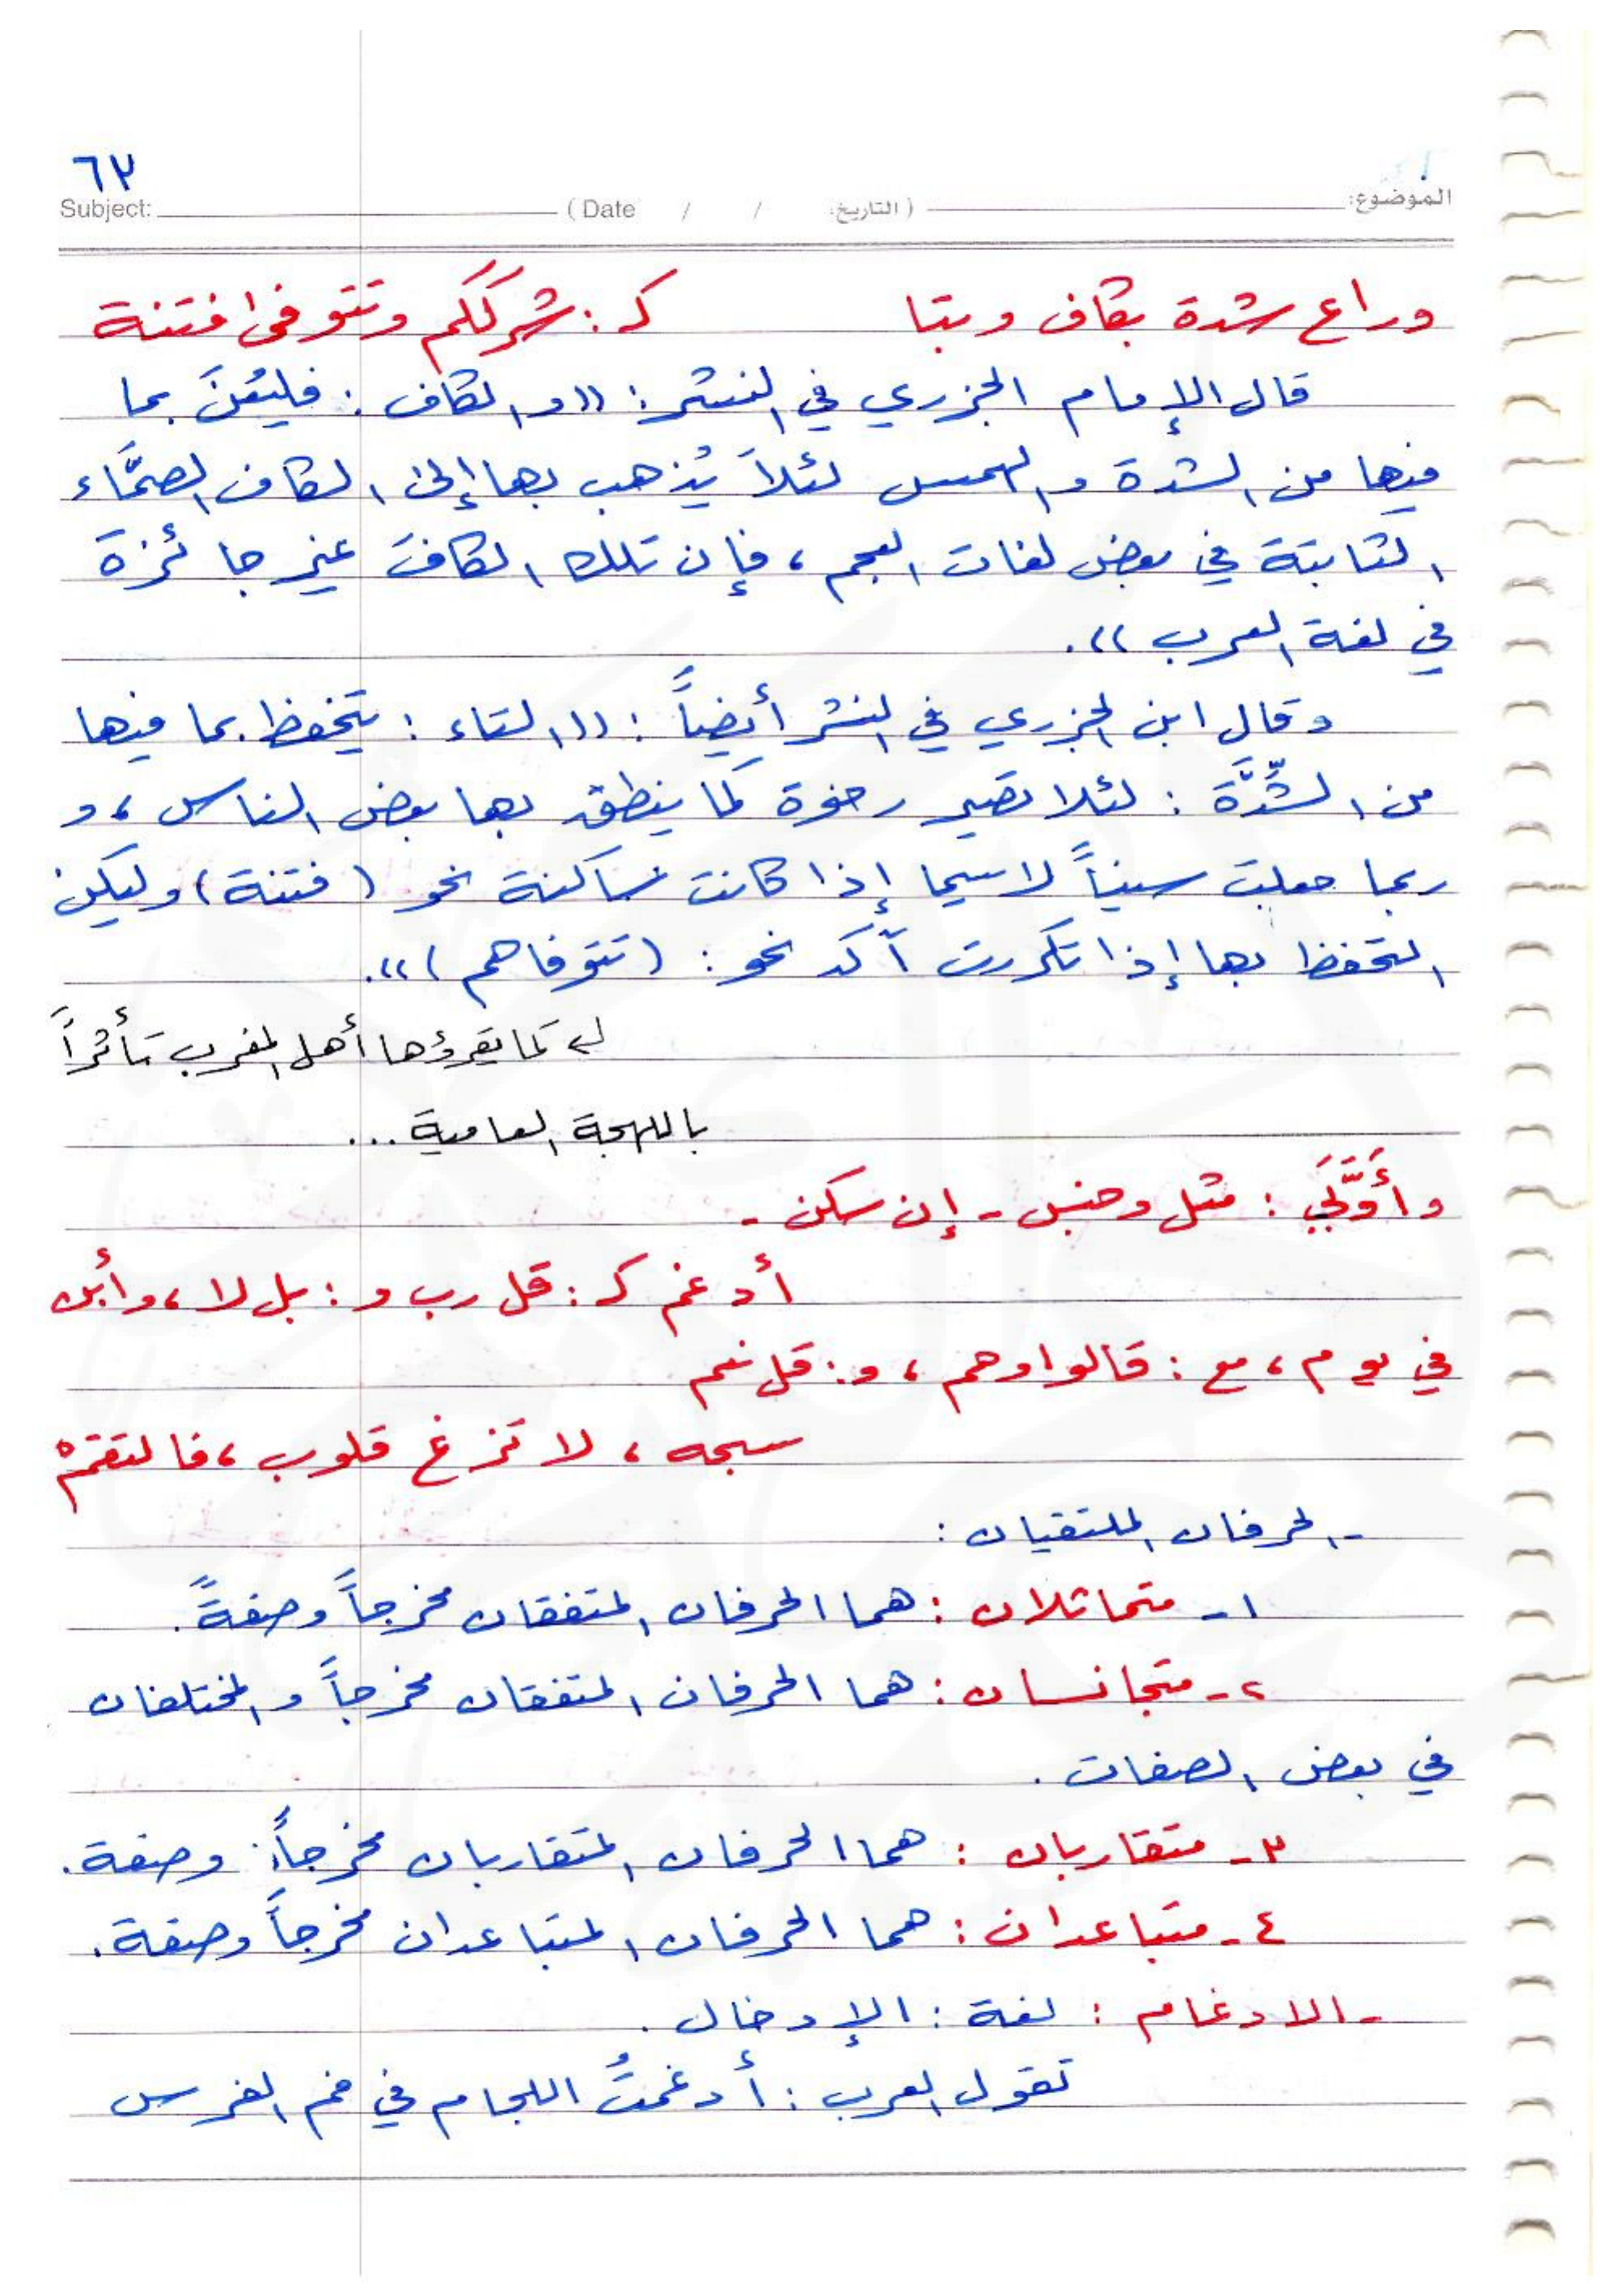 ٦٣
Subject: (Date / / التاريخ) الموضوع:
وراع شدة بكاف وبتا كـ: شرككم وتتوفى فتنة
قال الإمام الجزري في النشر: ((والكاف: فليُعْنَ بما
فيها من الشدة والهمس لئلاَّ يُذهب بها إلى الكاف الصمَّاء
الثابتة في بعض لغات العجم، فإن تلك الكافَ غير جائزة
في لغة العرب)).
وقال ابن الجزري في النشر أيضاً: ((التاء: يتحفظ بما فيها
من الشِّدَّة: لئلا تصير رخوة كما ينطق بها بعض الناس، و
ربما جعلت سيناً لاسيما إذا كانت ساكنة نحو (فتنة) وليكن
التحفظ بها إذا تكررت آكد نحو: (تتوفاهم))).
كما يقرؤها أهل المغرب تأثراً
باللهجة العامية...
وأَوَّلَيْ: مثل وجنس - إن سكن -
أدغم كـ: قل رب و: بل لا، وأبن
في يوم، مع: قالوا وهم، و: قل نعم
سبحه، لا تزغ قلوب، فالتقمْ
- الحرفان الملتقيان:
١- متماثلان: هما الحرفان المتفقان مخرجاً وصفةً.
٢- متجانسان: هما الحرفان المتفقان مخرجاً والمختلفان
في بعض الصفات.
٣- متقاربان: هما الحرفان المتقاربان مخرجاً وصفة.
٤- متباعدان: هما الحرفان المتباعدان مخرجاً وصفة.
- الادغام: لغة: الإدخال.
تقول العرب: أدغمتُ اللجام في فم الفرس